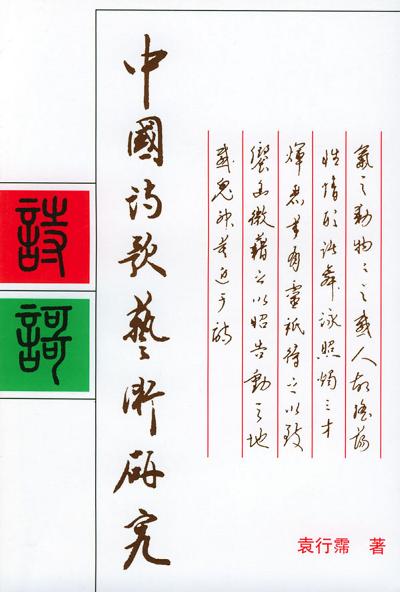 中國詩歌藝術研究
詩
謌
氣之動物物之感人故搖蕩
性情形諸舞詠照燭三才
煇麗萬有靈祇待之以致
饗幽微藉之以昭告動天地
感鬼神莫近于詩
袁行霈 著